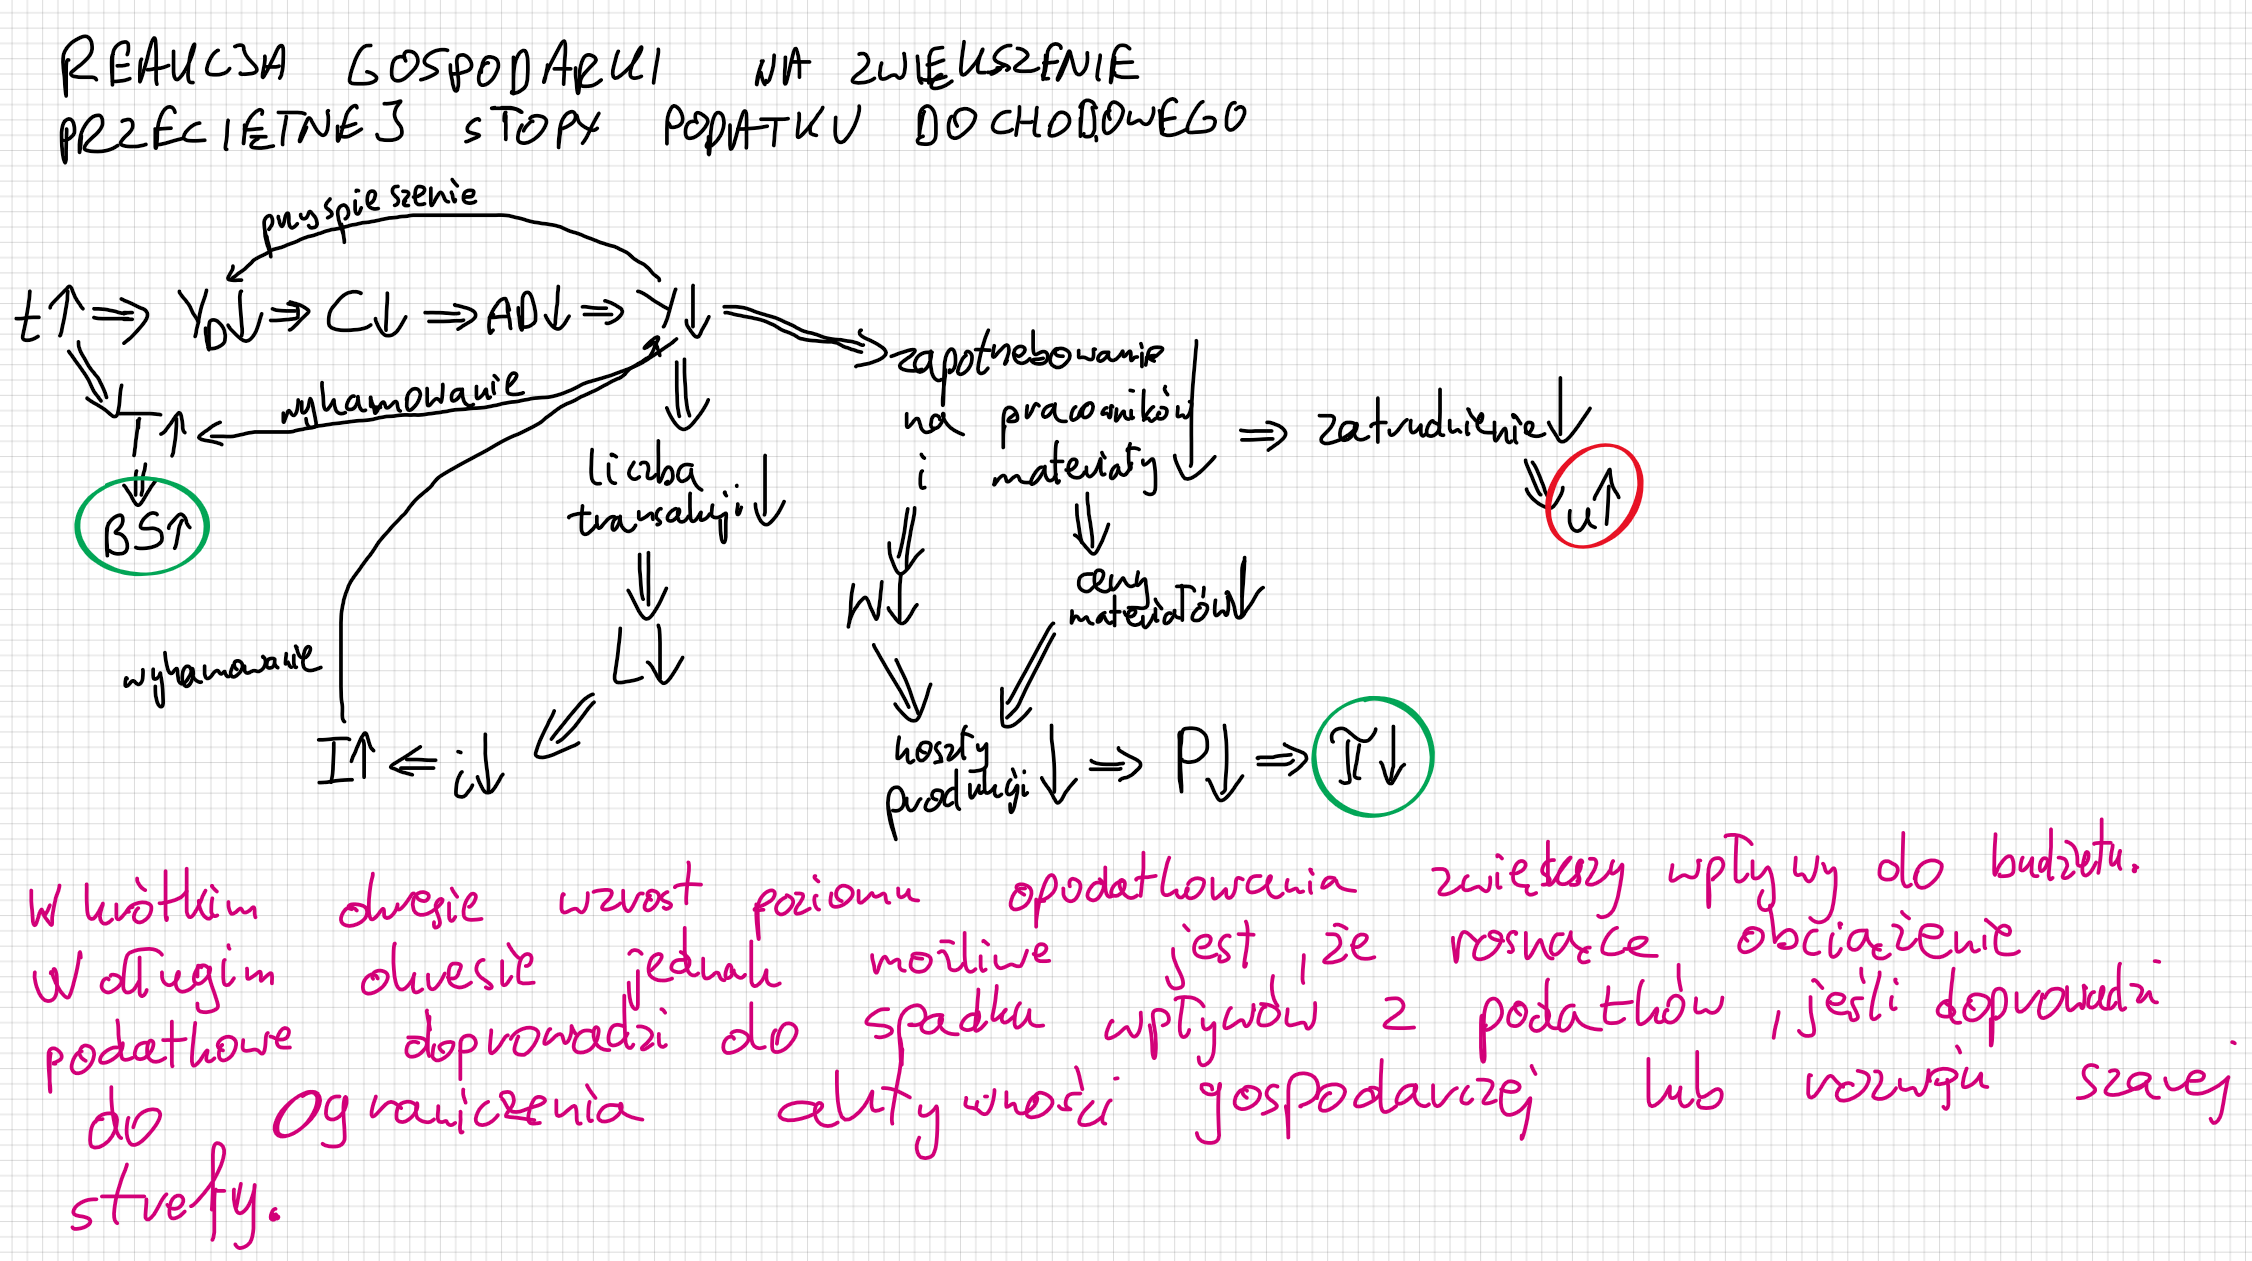 REAKCJA GOSPODARKI NA ZWIĘKSZENIE
PRZECIĘTNEJ STOPY PODATKU DOCHODOWEGO
przyspieszenie
t↑ ⇒ Y_D↓ ⇒ C↓ ⇒ AD↓ ⇒ Y↓
zapotrzebowanie
na pracowników
i materiały ↓ ⇒ zatrudnienie↓
wyhamowanie
T↑
liczba
transakcji ↓
BS↑
u↑
W↓
ceny
materiałów↓
L↓
wyhamowanie
I↑ ⇐ i↓
koszty
produkcji ↓ ⇒ P↓ ⇒ π↓
W krótkim okresie wzrost poziomu opodatkowania zwiększy wpływy do budżetu.
W długim okresie jednak możliwe jest, że rosnące obciążenie
podatkowe doprowadzi do spadku wpływów z podatków, jeśli doprowadzi
do ograniczenia aktywności gospodarczej lub rozwoju szarej
strefy.